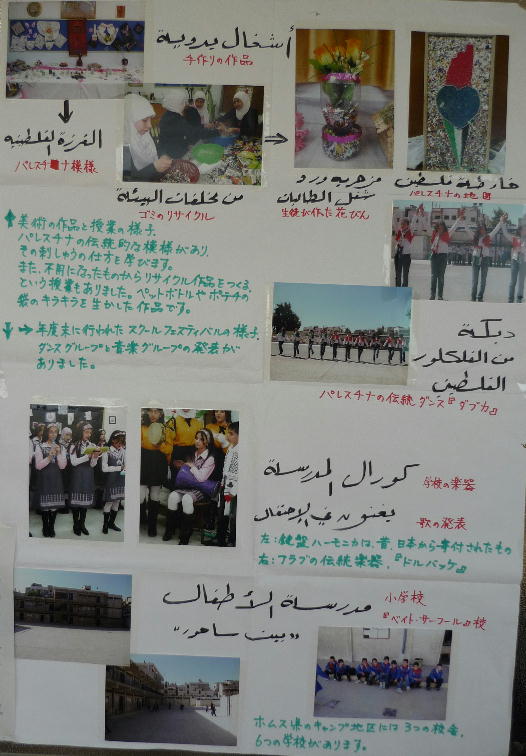 أشغال يدوية
手作りの作品
الغرزة الفلسطينية
パレスチナ模様
من مخلفات البيئة
ゴミのリサイクル
مزهرية ورد
شغل الطالبات
生徒が作た花びん
خارطة فلسطين
パレスチナの地図
美術の作品と授業の様子.
パレスチナの伝統的な模様があり、
その刺しゅうの仕方を学びます。
また、不用になったものからリサイクル作品をつくる、
という授業もありました。ペットボトルやポテチの
袋のキラキラを生かした作品です。
年度末に行われたスクールフェスティバルの様子.
ダンスグループと音楽グループの発表が
ありました。
دبكة
من الفلكلور
الفلسطيني
パレスチナの伝統ダンス『ダブカ』
كورال المدرسة
学校の楽器
يغنون في الإحتفال
歌の発表
左:鍵盤ハーモニカは、昔、日本から寄付されたもの
右:アラブの伝統楽器、『ドルバッケ』
مدرسة الأطفال
小学校
"بيت ساحور"
『ベイト・サーフール』の校
ホムス県のキャンプ地区には3つの校舎、
6つの学校があります。